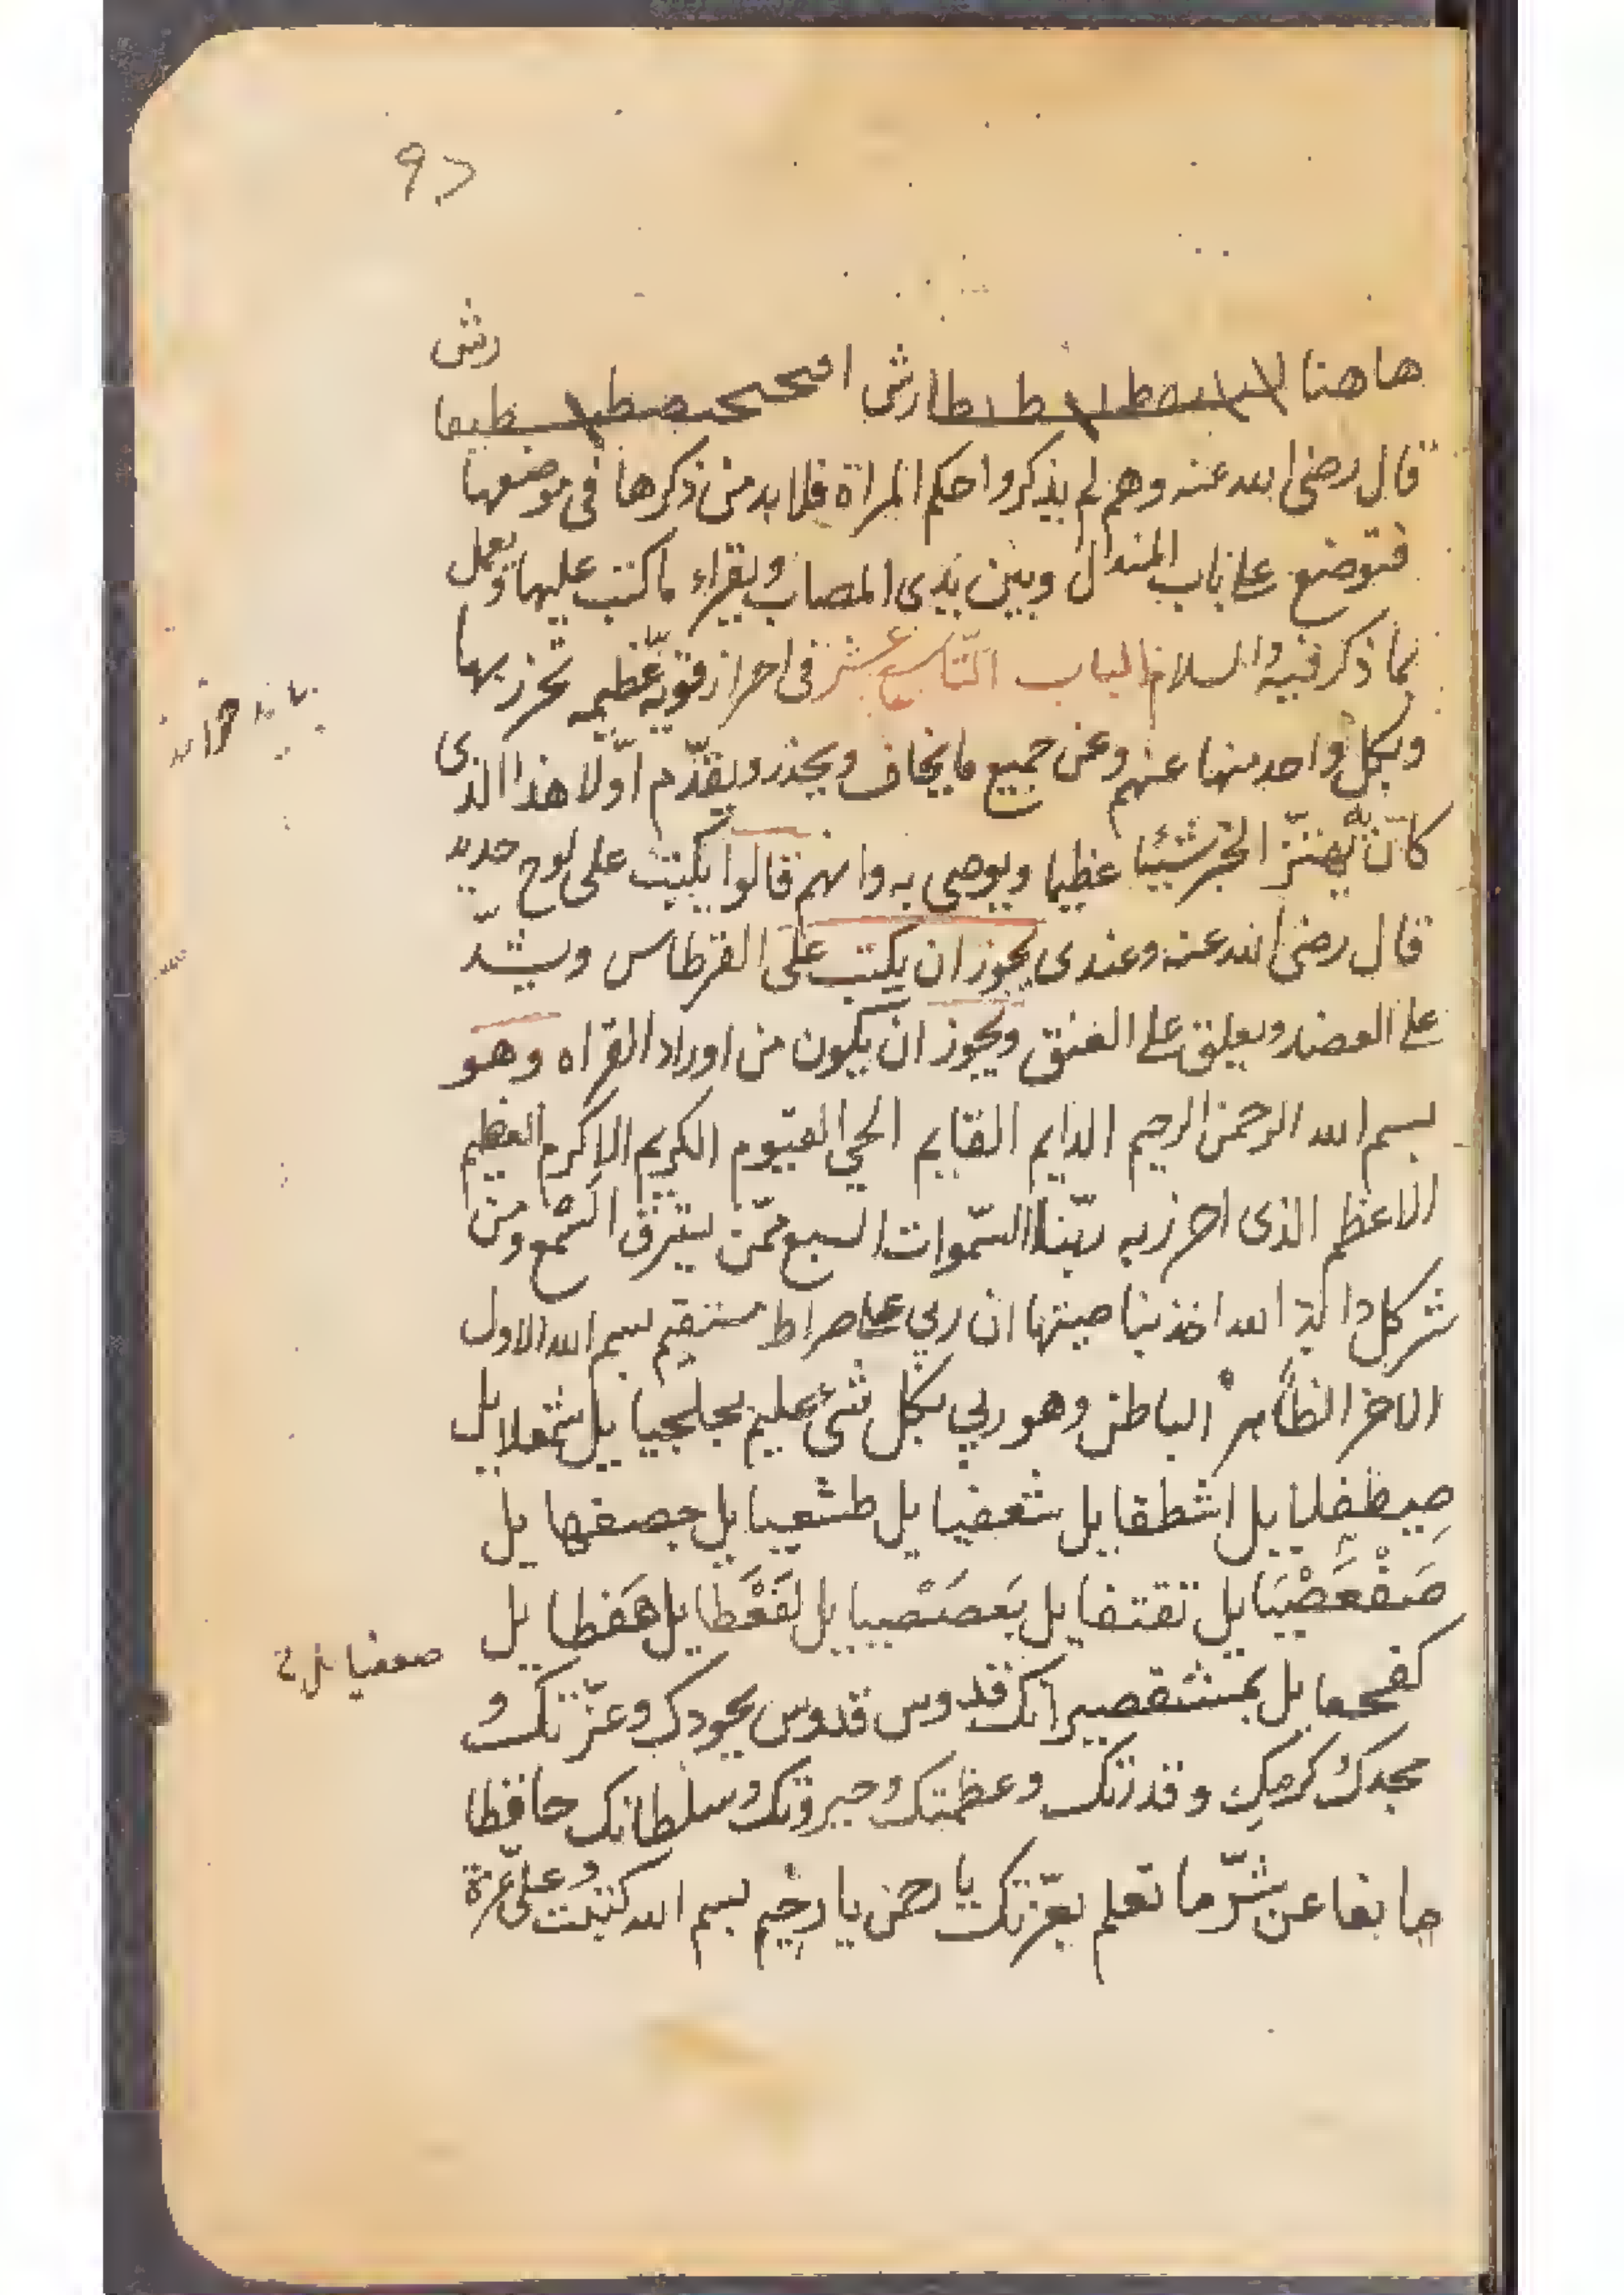 ها هنا
قال رضى الله عنه وهم لم يذكروا حكم المراة فلا بد من ذكرها فى موضعها
فتوضع على باب المندل وبين يدى المصاب ويقراء ما كتب عليها ويعمل
بما ذكر فيه والسلام الباب التّاسع عشر فى احراز قويّه عظيمه تحرز بها
وبكل واحد منها عنهم وعن جميع ما يخاف ويحذر ويقدّم اوّلا هذا الذى
كانّ الخبر شيئا عظيما ويوصى به وانهم قالوا يكتب على لوح حديد
قال رضى الله عنه وعندى يجوز ان يكتب على القرطاس ويشدّ
على العضد ويعلق على العنق ويجوز ان يكون من اوراد القراه وهو
بسم الله الرحمن الرحيم الدايم القايم الحي القيوم الكريم الاكرم العظيم
الاعظم الذى احرز به ربّنا السّموات السبع ممّن يسترق السّمع ومن
شر كل دابة الله اخذ بناصيتها ان ربي على صراط مستقيم بسم الله الاول
الاخر الظاهر الباطن وهو ربي بكل شىء عليم بجلجيايل شمعلايل
صيطفليايل اشطقايل شعفيايل طشعيايل جصفهايل
صَفْعَصْيَايل تقتفايل بَعصَصْيبايل لَقَعْطايل هَفطايل
صعفيايل
كفحعايل بمشقصير انك قدوس قدوس بجودك وعزّتك و
مجدك وكرمك وقدرتك وعظمتك وجبروتك وسلطانك حافظا
مانعا عن شرّ ما تعلم بعزّتك يا رحمن يا رحيم بسم الله كتبت وعلى عزة